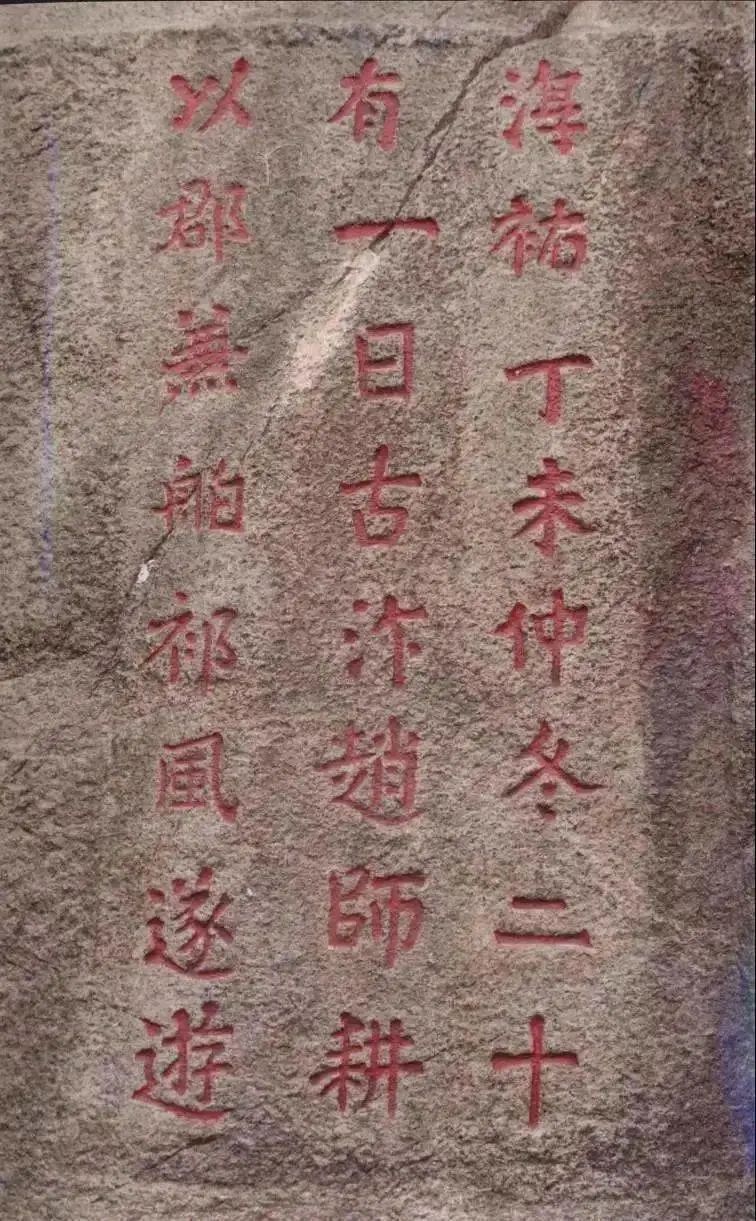 淳祐丁未仲冬二十
有一日古汴趙師耕
以郡兼舶祁風遂遊